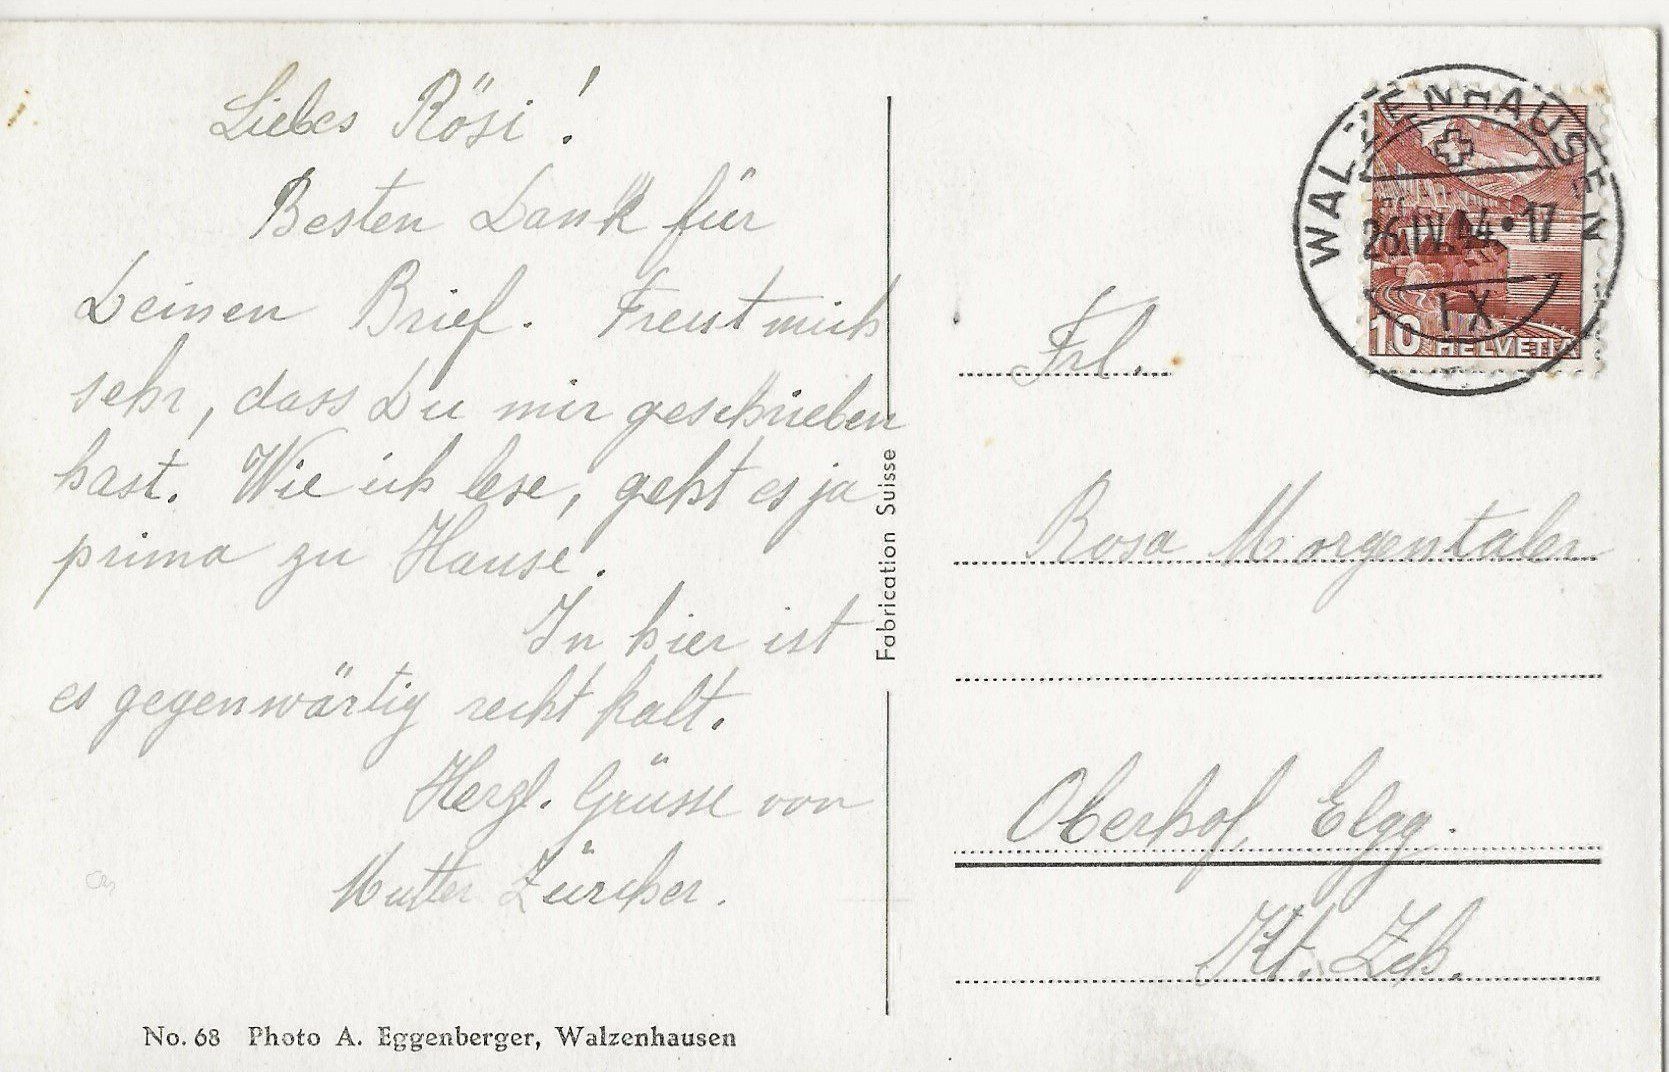 Liebes Rösi!
Besten Dank für
Deinen Brief. Freut mich
sehr, dass Du mir geschrieben
hast. Wie ich lese, geht es ja
prima zu Hause.
In hier ist
es gegenwärtig recht kalt.
Herzl. Grüsse von
Mutter Zürcher.
No. 68 Photo A. Eggenberger, Walzenhausen
Fabrication Suisse
WALZENHAUSEN
26.IV.44•17
10 HELVETIA
Frl.
Rosa Morgentaler
Oberhof, Elgg.
Kt. Zch.